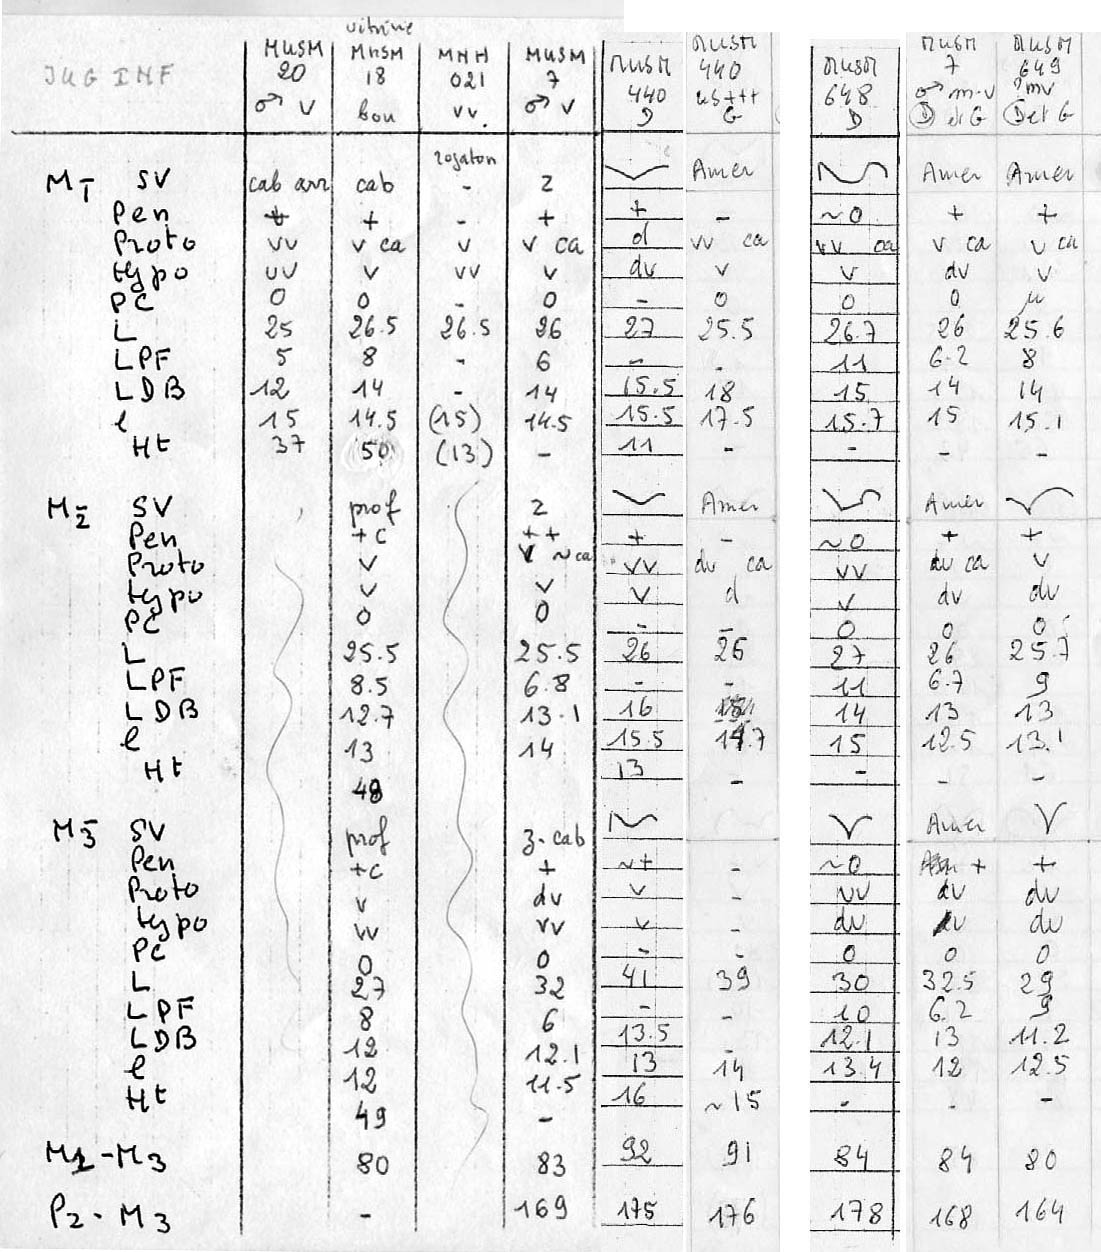 vitrine
JUG INF MUSM 20 ♂ V MUSM 18 bon MNH 021 vv. MUSM 7 ♂ V MUSM 440 D MUSM 440 us+++ G MUSM 648 D MUSM 7 ♂ m-v D et G MUSM 649 mv D et G
rogaton
M1 SV cab arr cab - 2 Amer Amer Amer
Pen + + - + + - ~0 + +
Proto vv v ca v v ca d vv ca vv ca v ca v ca
Hypo vv v vv v dv v v dv v
PC 0 0 - 0 - 0 0 0 μ
L 25 26.5 26.5 26 27 25.5 26.7 26 25.6
LPF 5 8 - 6 - - 11 6.2 8
LDB 12 14 - 14 15.5 18 15 14 14
l 15 14.5 (15) 14.5 15.5 17.5 15.7 15 15.1
Ht 37 50 (13) - 11 - - - -
M2 SV prof 2 Amer Amer
Pen +c ++ + - ~0 + +
Proto v v ~ca vv dv ca vv dv ca v
Hypo v v v d v dv dv
PC 0 0 - - 0 0 0
L 25.5 25.5 26 26 27 26 25.7
LPF 8.5 6.8 - - 11 6.7 9
LDB 12.7 13.1 16 14 13 13
l 13 14 15.5 15 12.5 13.1
Ht 49 13 - - - -
M3 SV prof z-cab Amer
Pen +c + ~+ - ~0 + +
Proto v dv v - vv dv dv
Hypo vv vv v - dv dv dv
PC 0 0 - - 0 0 0
L 27 32 41 39 30 32.5 29
LPF 8 6 - - 10 6.2 9
LDB 12 12.1 13.5 - 12.1 13 11.2
l 12 11.5 13 14 13.4 12 12.5
Ht 49 - 16 ~15 - - -
M1-M3 80 83 92 91 84 84 80
P2-M3 - 169 175 176 178 168 164